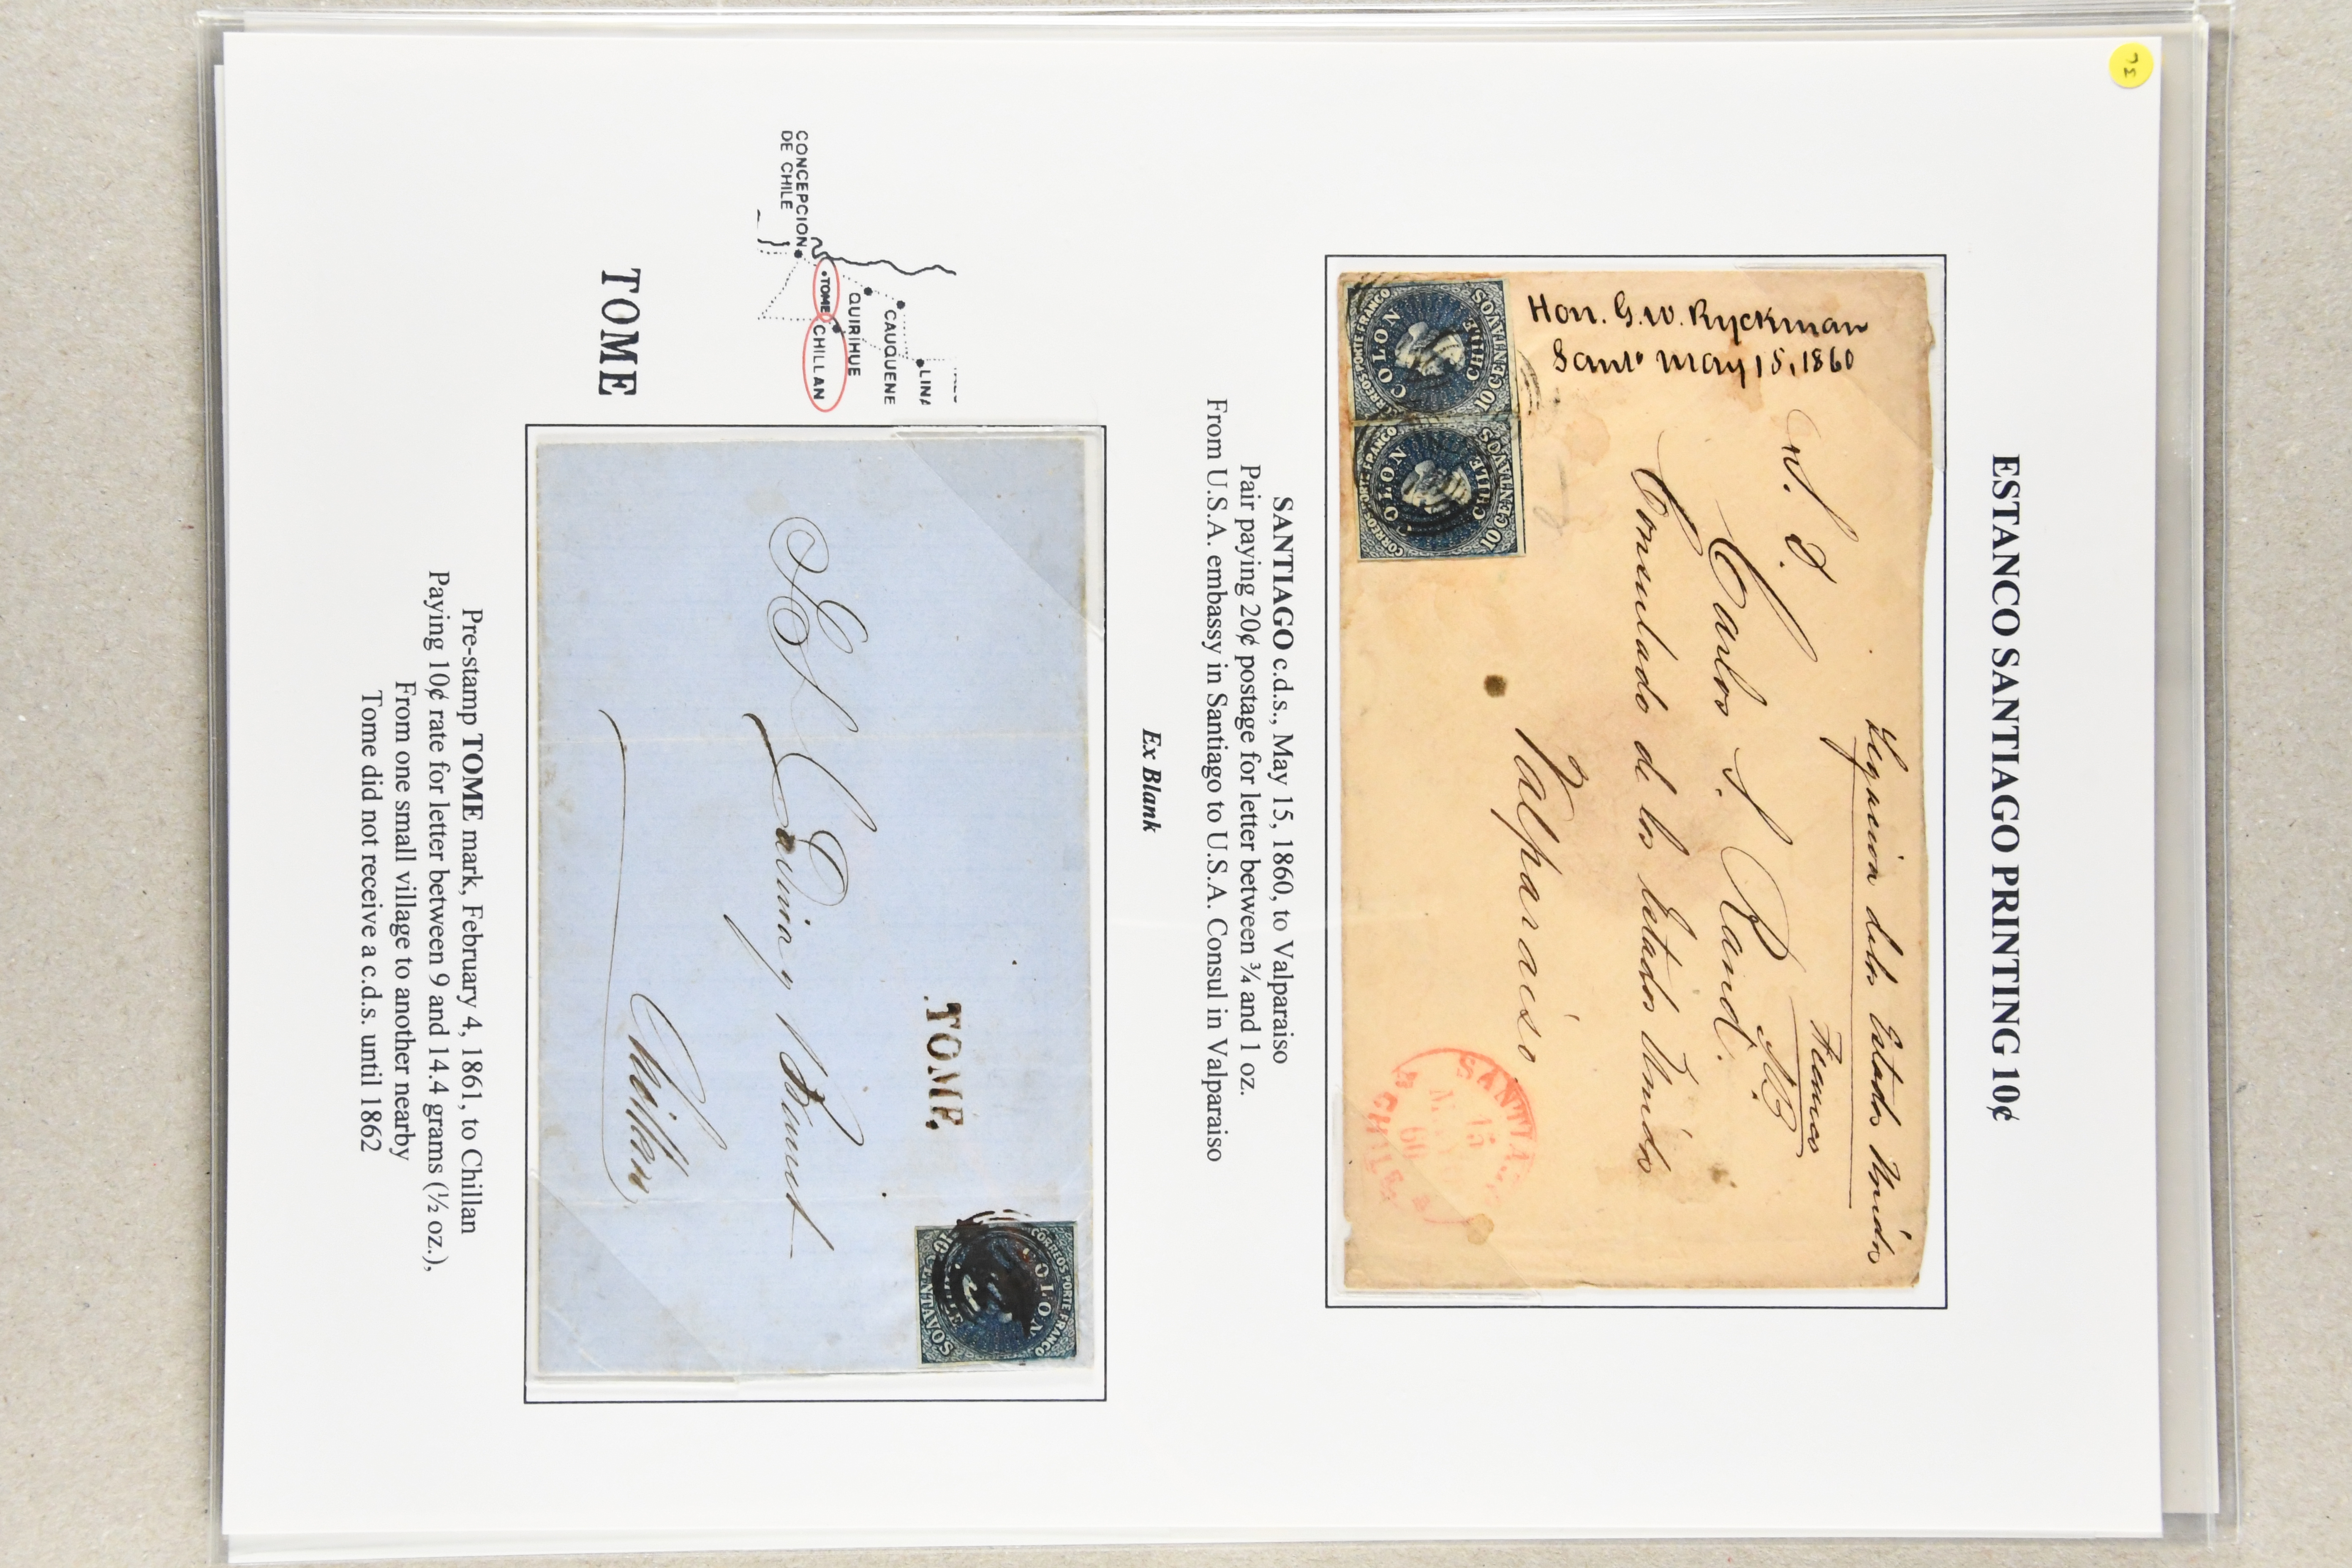 ESTANCO SANTIAGO PRINTING 10¢
Hon. G.W. Ryckman
Sant° May 15, 1860
Legacion de los Estados Unidos
Franco
S. D.
Carlos S. Rand.
Consulado de los Estados Unidos
Valparaiso
COLON
CHILE
10 CENTAVOS
CORREOS PORTE FRANCO
COLON
CHILE
10 CENTAVOS
CORREOS PORTE FRANCO
SANTIA
15
MAYO
60
CHILE
SANTIAGO c.d.s., May 15, 1860, to Valparaiso
Pair paying 20¢ postage for letter between ¾ and 1 oz.
From U.S.A. embassy in Santiago to U.S.A. Consul in Valparaiso
Ex Blank
LINA
CAUQUENE
QUIRIHUE
CHILLAN
TOME
CONCEPCION
DE CHILE
TOME
TOME.
CORREOS PORTE FRANCO
COLON
10 CENTAVOS
Chillan
Pre-stamp TOME mark, February 4, 1861, to Chillan
Paying 10¢ rate for letter between 9 and 14.4 grams (½ oz.),
From one small village to another nearby
Tome did not receive a c.d.s. until 1862